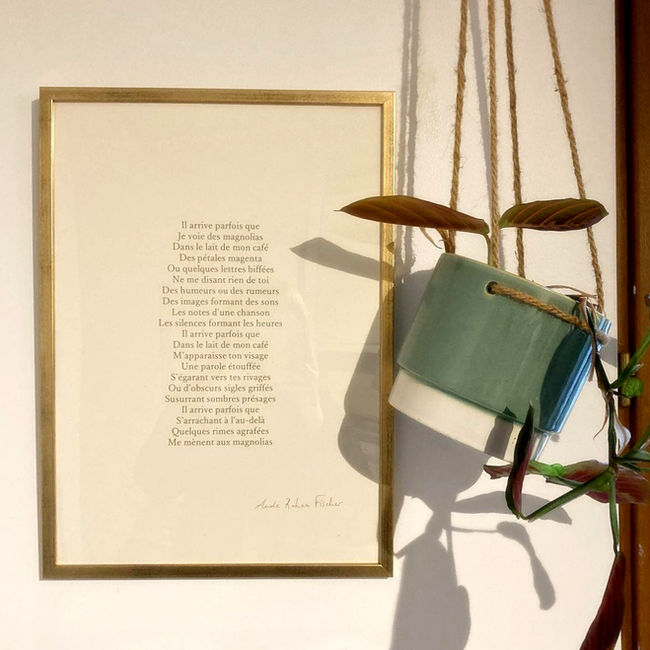 Il arrive parfois que
Je voie des magnolias
Dans le lait de mon café
Des pétales magenta
Ou quelques lettres biffées
Ne me disant rien de toi
Des humeurs ou des rumeurs
Des images formant des sons
Les notes d'une chanson
Les silences formant les heures
Il arrive parfois que
Dans le lait de mon café
M'apparaisse ton visage
Une parole étouffée
S'égarant vers tes rivages
Ou d'obscurs sigles griffés
Susurrant sombres présages
Il arrive parfois que
S'arrachant à l'au-delà
Quelques rimes agrafées
Me mènent aux magnolias
Fischer